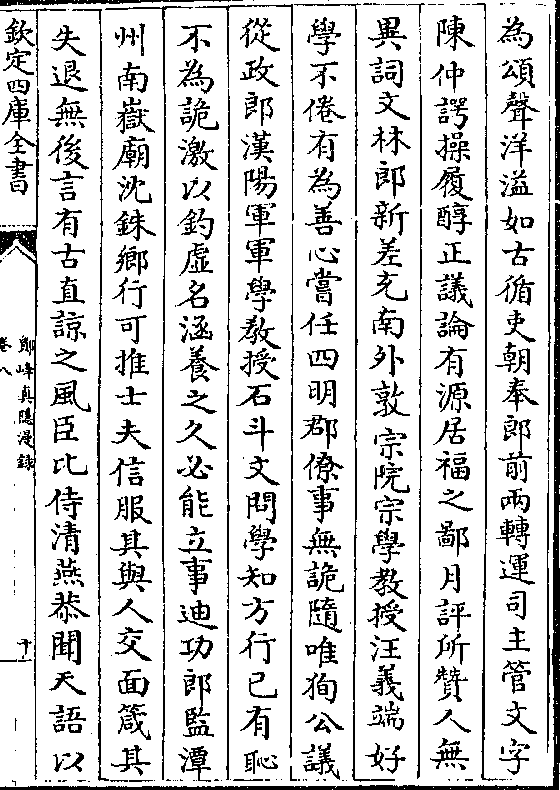 為頌聲洋溢如古循吏朝奉郎前兩轉運司主管文字
陳仲諤操履醇正議論有源居福之鄙月評所贊人無
異詞文林郎新差充南外敦宗院宗學教授汪義端好
學不倦有為善心嘗任四明郡僚事無詭隨唯狥公議
從政郎漢陽軍軍學教授石斗文問學知方行已有恥
不為詭激以釣虚名涵養之久必能立事迪功郎監潭
州南嶽廟沈銖鄉行可推士夫信服其與人交面箴其
失退無後言有古直諒之風臣比侍清燕恭聞天語以
欽定四庫全書
鄮峰真隱漫録
卷八
十